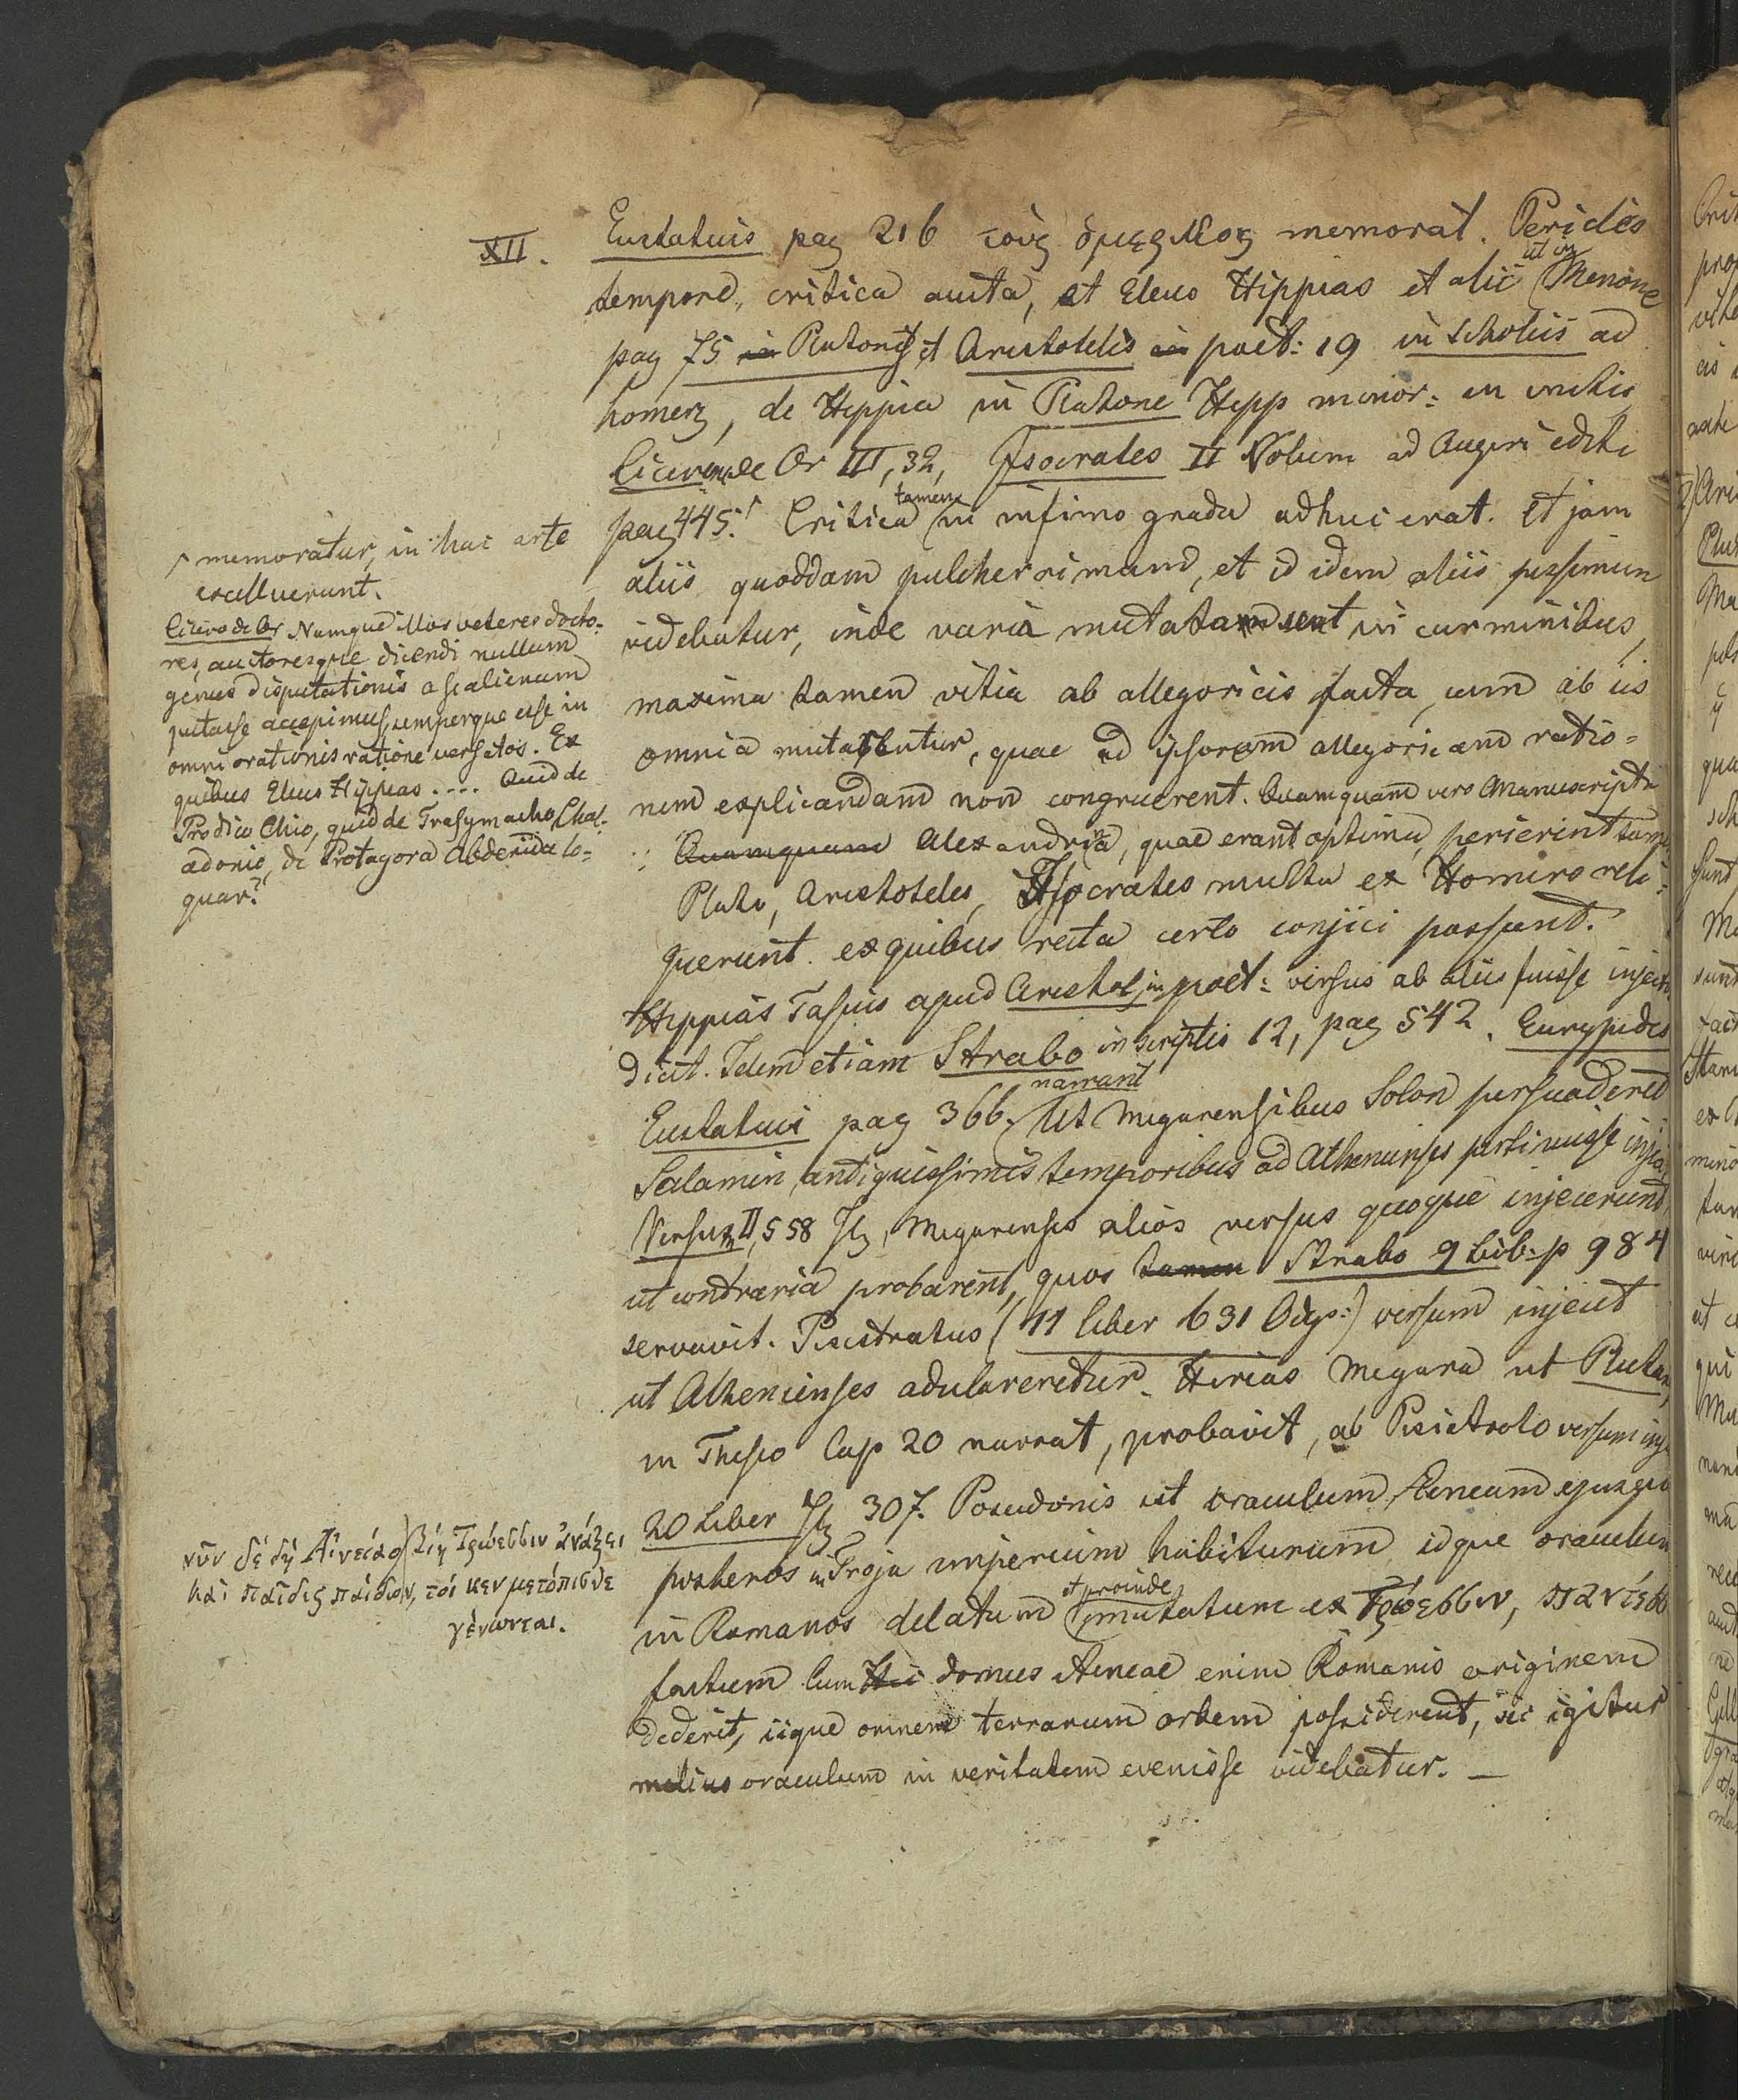 XII. Eustatuis pag 216 τούς ὁμερικους memorat. Periclis
tempore, critica aucta, et Eleus Hippias et alii ut in Menone
pag 75 Platonis et Aristotelis poet: 19 in scholiis ad
homer, de Hippia in Platone Hipp minor: in initio
Cicero de Or III, 32, Isocrates II Volum ad Augeri editi
pag 445. Critica tamen in infimo gradu adhuc erat. Et jam
aliis quoddam pulcherrimum, et id idem aliis pessimum
videbatur, inde varia mutata sunt in carminibus,
maxima tamen vitia ab allegoricis facta, cum ab iis
omnia mutabentur, quae ad ipsorum allegoricam ratio=
nem explicandam non congruerent. Quamquam vero Manuscripta
Quamquam Alexandrina, quae erant optima, perierint tamen
Plato, Aristoteles, Isocrates multa ex Homero reli=
querunt. ex quibus recta certo conjici possunt.
Hippias Tasius apud Aristot in poet: versus ab aliis fuisse injectos
dicit. Idem etiam Strabo in scriptis 12, pag 542. Eurypides
Eustatuis pag 366. narrant Ut Megarensibus Solon persuaderet
Salamin, antiquissimis temporibus ad Athenienses pertinuisse
Versum II, 558 Il, Megarenses alios versus quoque injecerunt,
ut contraria probarent, quos tamen Strabo 9 Lib: p 984
servavit. Pisistratus (11 liber 631 Odys:) versum injecit
ut Athenienses adulareretur. Hireas Megara ut Plutar,
in Theseo Cap 20 narrat, probavit, ab Pisistrato versum
20 Liber Il 307. Poseidonis est oraculum, Aeneam ejusque
posteros in Troja imperium habiturum idque oraculum
in Romanos delatum et proinde mutatum ex Τρώεσσιν, παντεσσ
factum Cum Hic domus Aeneae enim Romanis originem
dederit, iique omnem terrarum orbem possiderent, sic igitur
melius oraculum in veritatem evenisse videbatur. —
memoratur, in hac arte
excelluerunt.
Cicero de Or Namque illos veteres docto=
res, auctoresque dicendi nullum
genus disputationis a se alienum
putasse accepimus, semperque esse in
omni orationis ratione versatos. Ex
quibus Eleus Hippias .... Quid de
Prodico Chio, quid de Trasymacho Chal=
cedonio, de Protagora Abderida lo=
quar?
νῦν δέ δή Αἰνείαο βίη Τρώεσσιν ἀνάξει
καὶ παῖδες παίδων, τοί κεν μετόπισθε
γένωνται.